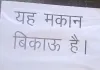 यह मकान
बिकाऊ है।